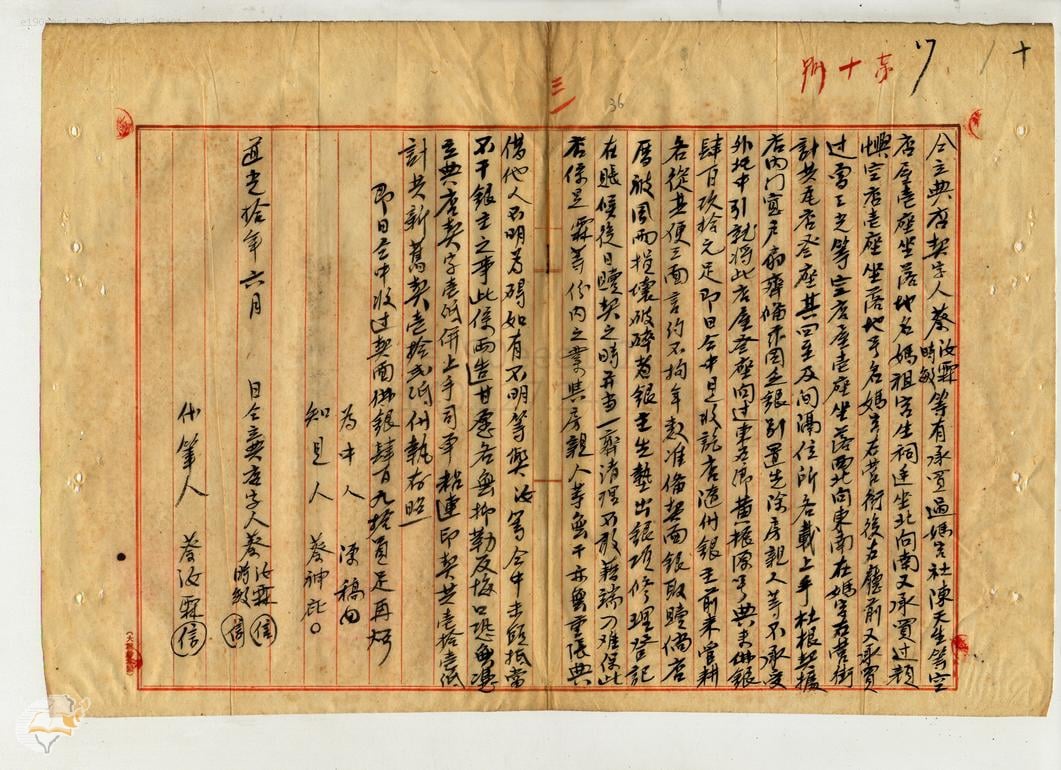 十
東十號
三
36
仝立典店契字人蔡汝霖時敏等有承買過媽宮社陳天生等空
店屋壹座坐落地名媽祖宮生祠邊坐北向南又承買過顏
空店壹座坐落地名媽宮右營衙後左廳前又承買
過 等空店屋壹座坐落西北向東南在媽宮右營街
計共瓦店叁座其四至及間隔住所各載上手杜根契據
店內門窗戶扇齊備 因乏銀別置先除房親人等不承受
外托中引就將此店屋叁座向過東石 黃 典 佛銀
肆百玖拾元足即日仝中見收訖店隨付銀主前來管耕
各從其便三面言約不拘年 准備契面銀取贖倘店
厝被風雨損壞破碎者銀主先墊出銀項修理登記
在賬候後日贖契之時再當一齊清理不敢藉端刁難保此
店係是霖等份內之業與房親人等無干亦無重張典
借他人不明為碍如有不明等弊汝 仝中 抵當
不干銀主之事此係兩造甘愿各無抑勒反悔口恐無憑
立典店契字壹紙併上手司單粘連印契共壹拾壹紙
計共新舊契壹拾 紙付執存照
即日仝中收过契面佛銀肆百九拾員足再炤
為中人 陳稿
知見人 蔡神 〇
道光拾年六月 日仝立典店字人蔡汝霖信時敏信
代筆人 蔡汝霖信